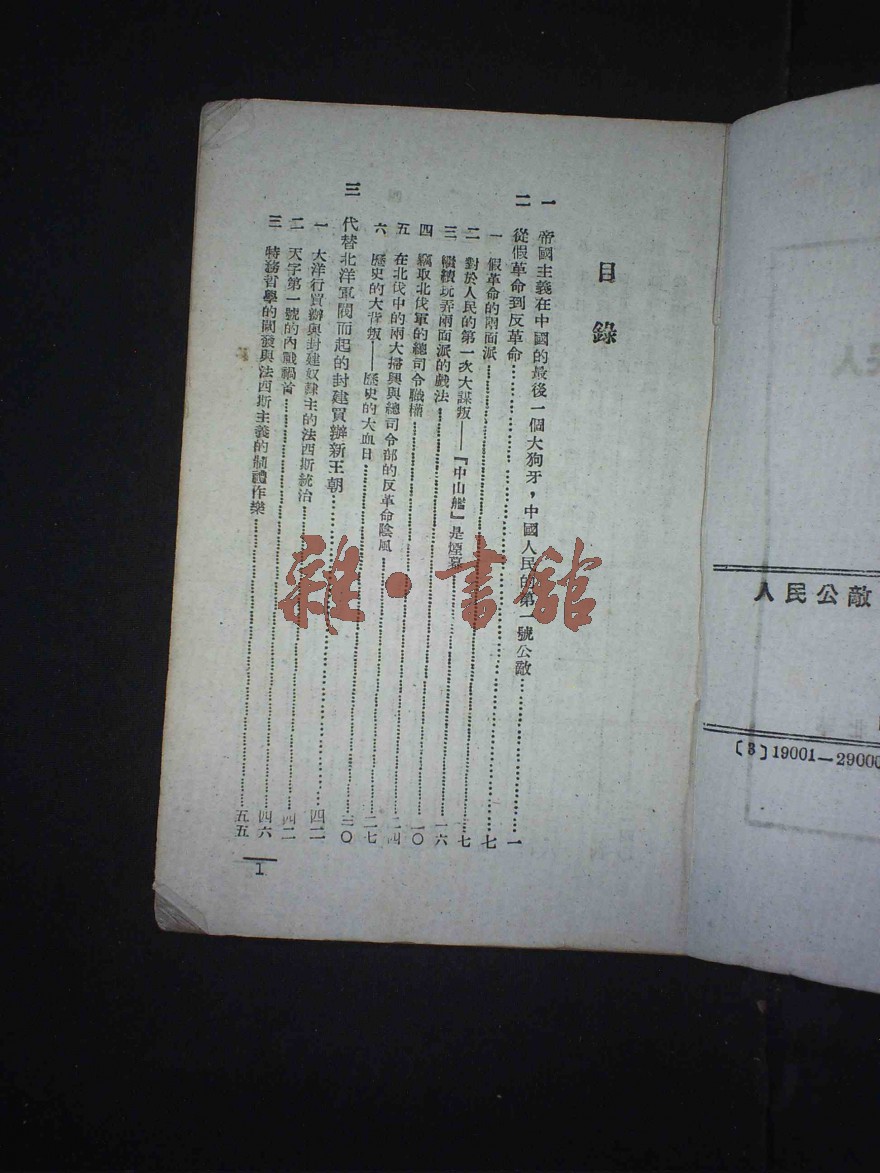 目錄
一 帝國主義在中國的最後一個大狗牙，中國人民的第一號公敵……一
二 從假革命到反革命……七
一 假革命的兩面派……七
二 對於人民的第一次大謀叛——『中山艦』是煙幕……一六
三 繼續玩弄兩面派的戲法……二〇
四 竊取北伐軍的總司令職權……二四
五 在北伐中的兩大掃興與總司令部的反革命陰風……二七
六 歷史的大背叛——歷史的大血日……三〇
三 代替北洋軍閥而起的封建買辦新王朝……四二
一 大洋行買辦與封建奴隸主的法西斯統治……四二
二 天字第一號的內戰禍首……四六
三 特務哲學的開發與法西斯主義的制禮作樂……五五
1
人民公敵
〔3〕19001—29000
雜·書館